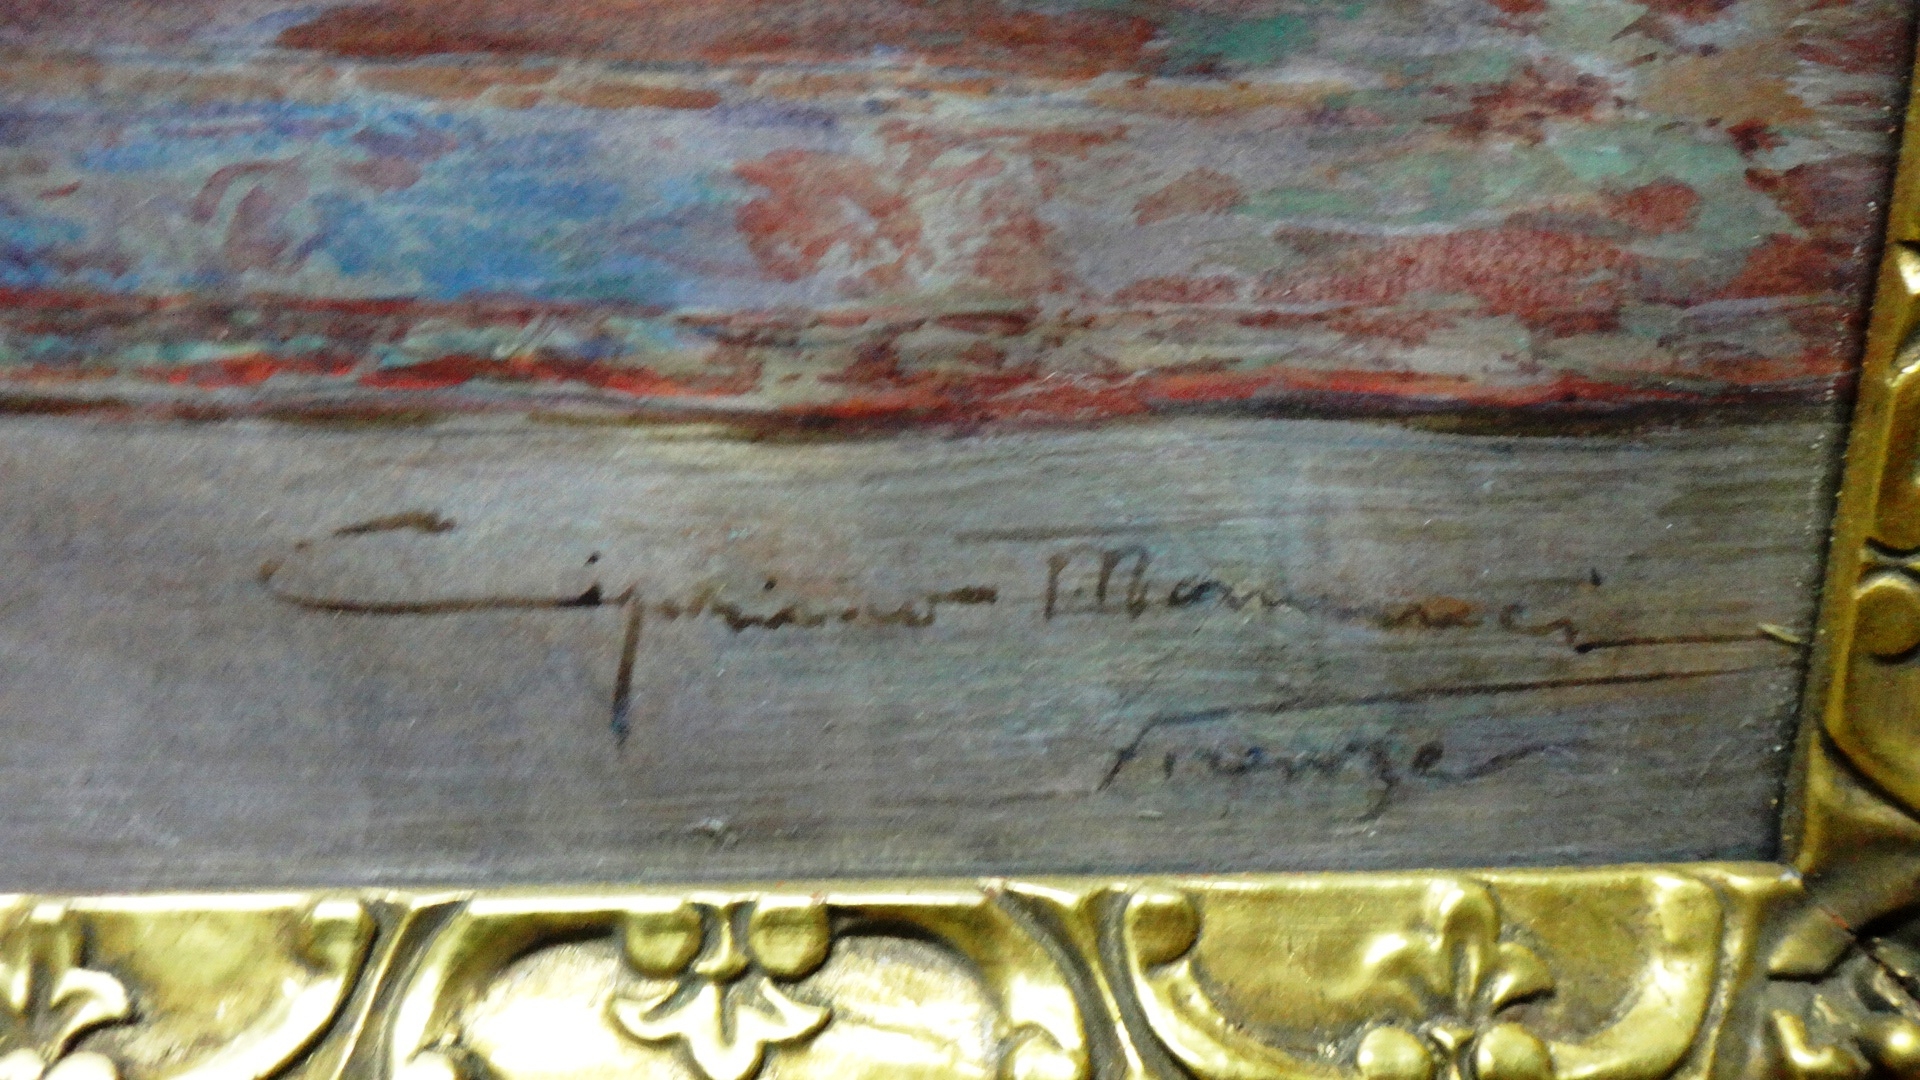 Cipriano Mannucci
Firenze